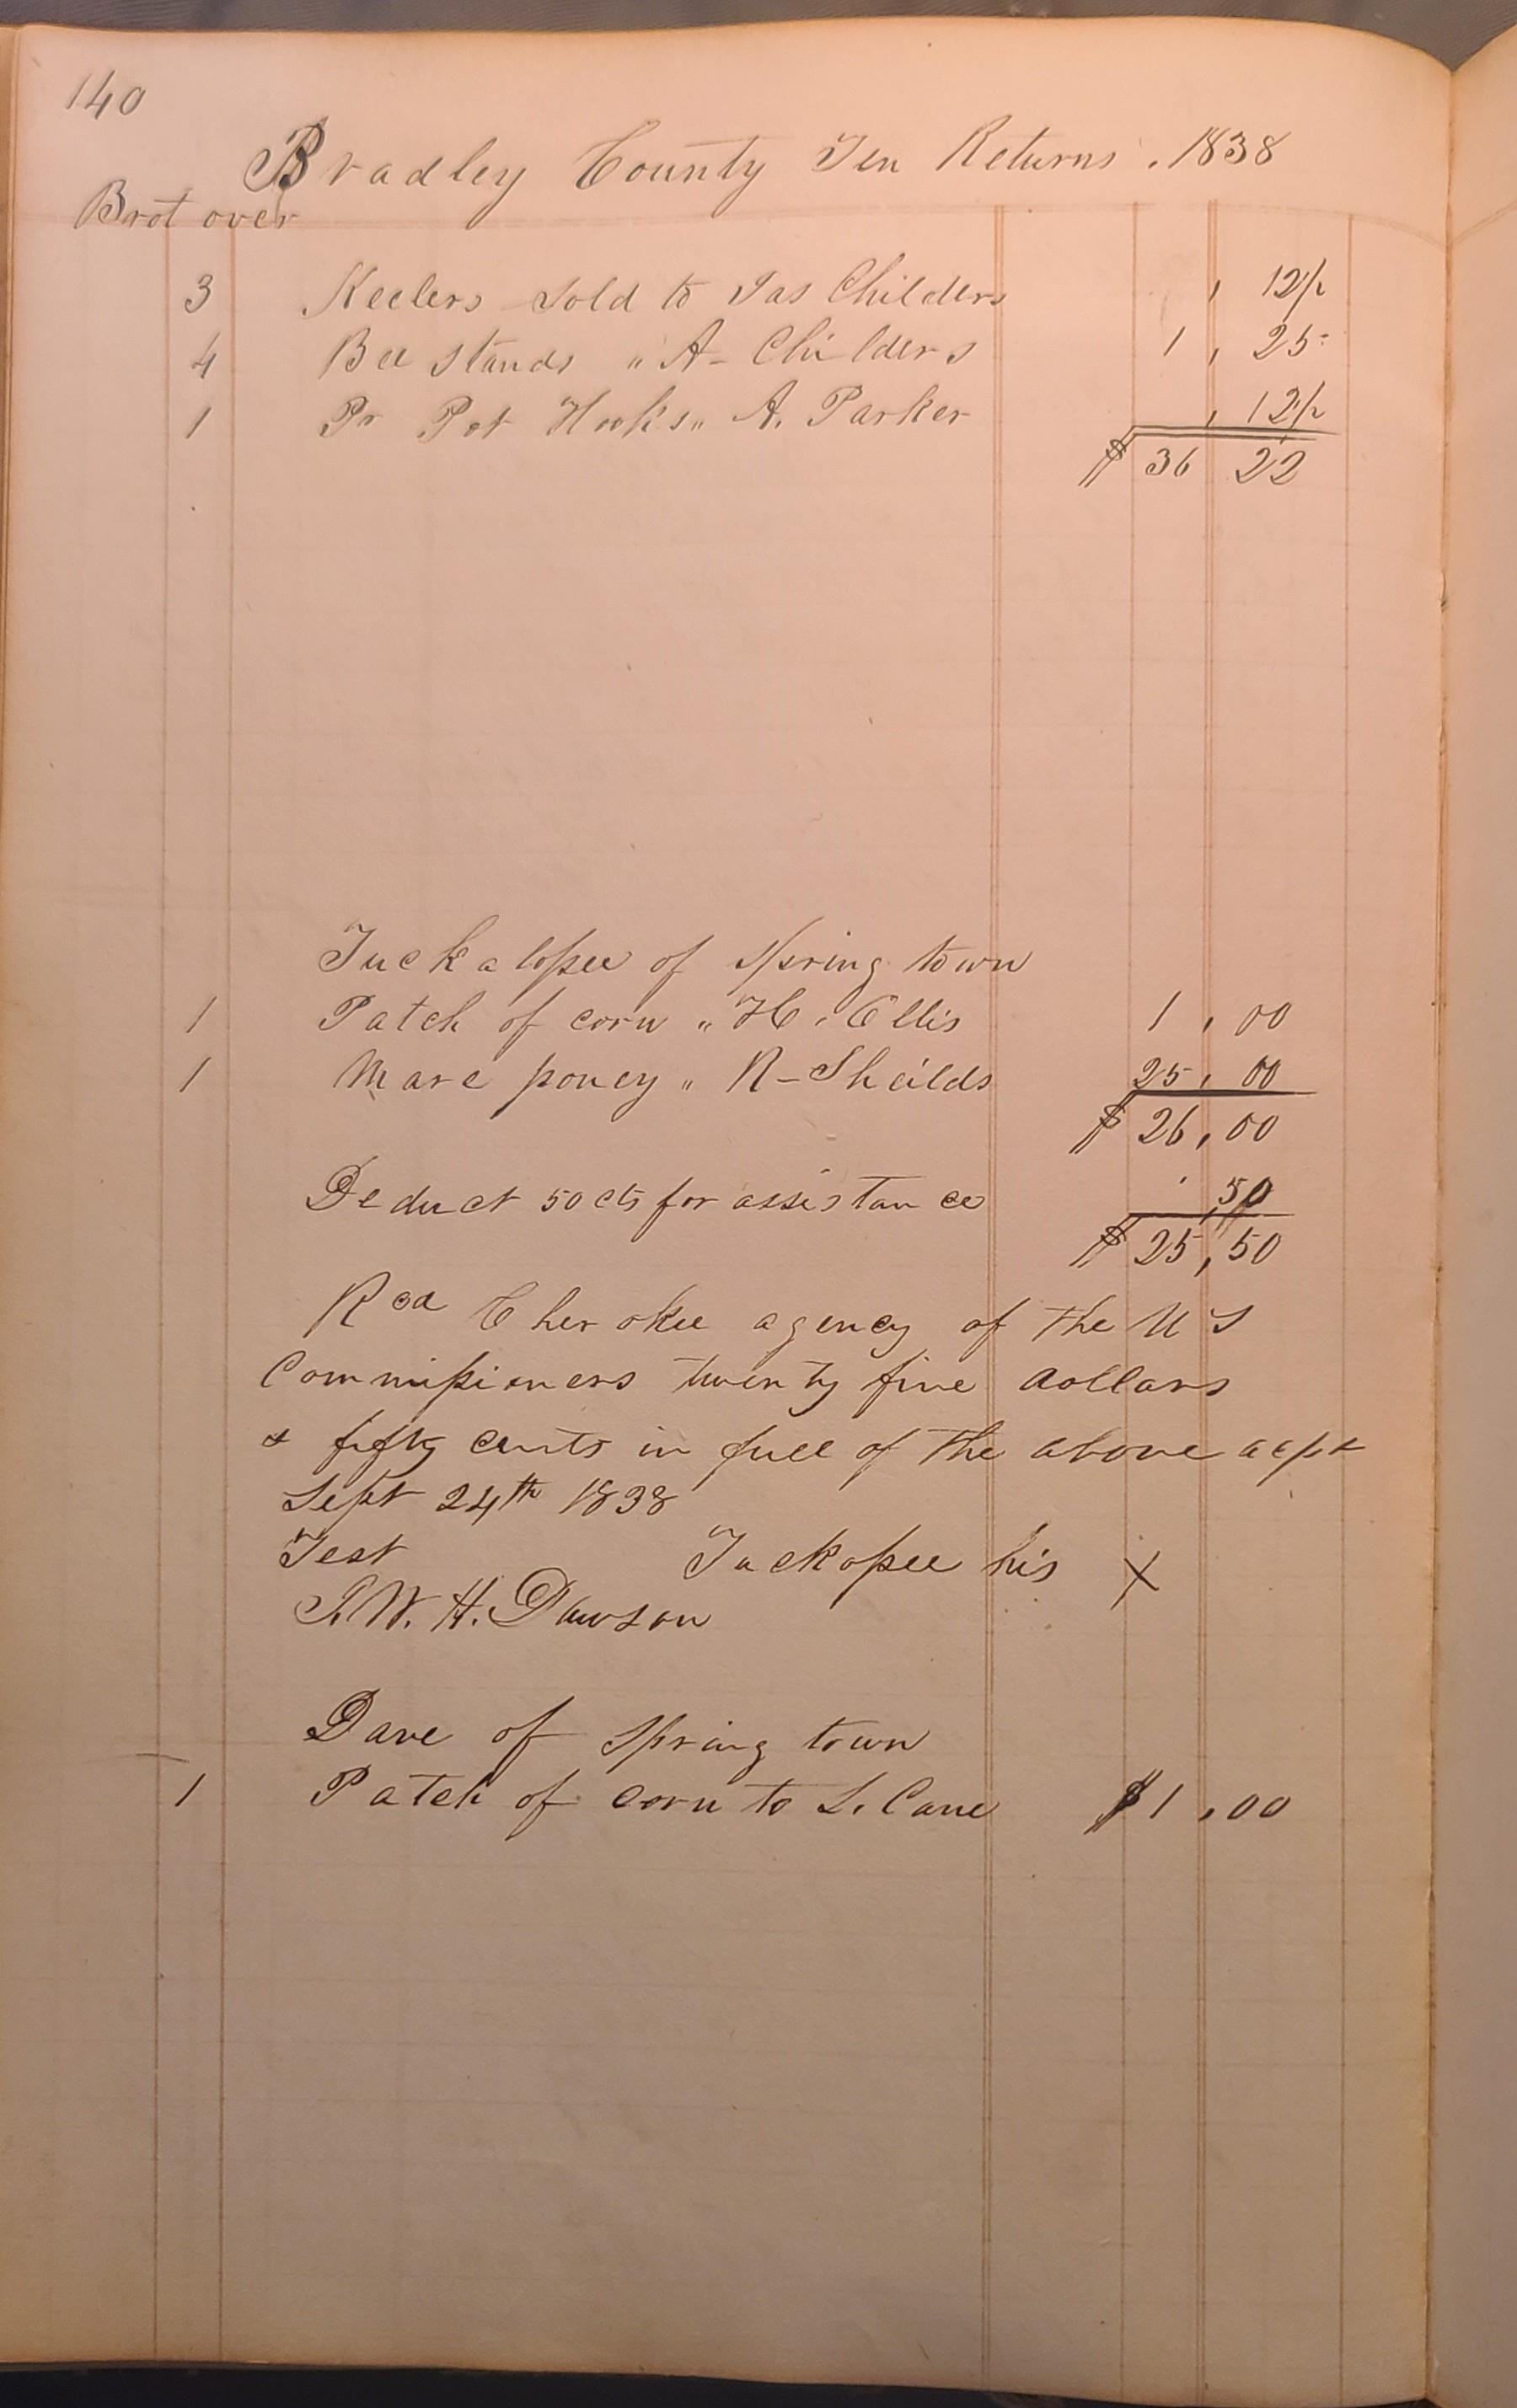 140
Bradley County Ten Returns . 1838
Brot over
3 Keelers Sold to Jas Childers , 12½
4 Bee stands " A - Childers 1 , 25
1 Pr Pot Hooks " A. Parker , 12½
$ 36 22
Tuckalopee of Spring town
1 Patch of corn " H. Ellis 1 , 00
1 Mare poney " R - Sheilds 25 , 00
$ 26 , 00
Deduct 50 cts for assistance , 50
$ 25 , 50
Recd Cherokee agency of the U S
Commissioners twenty five dollars
& fifty cents in full of the above acpt
Sept 24th 1838
Test Tuckopee his X
S. W. H. Dawson
Dave of Spring town
1 Patch of corn to L. Cane $ 1 , 00